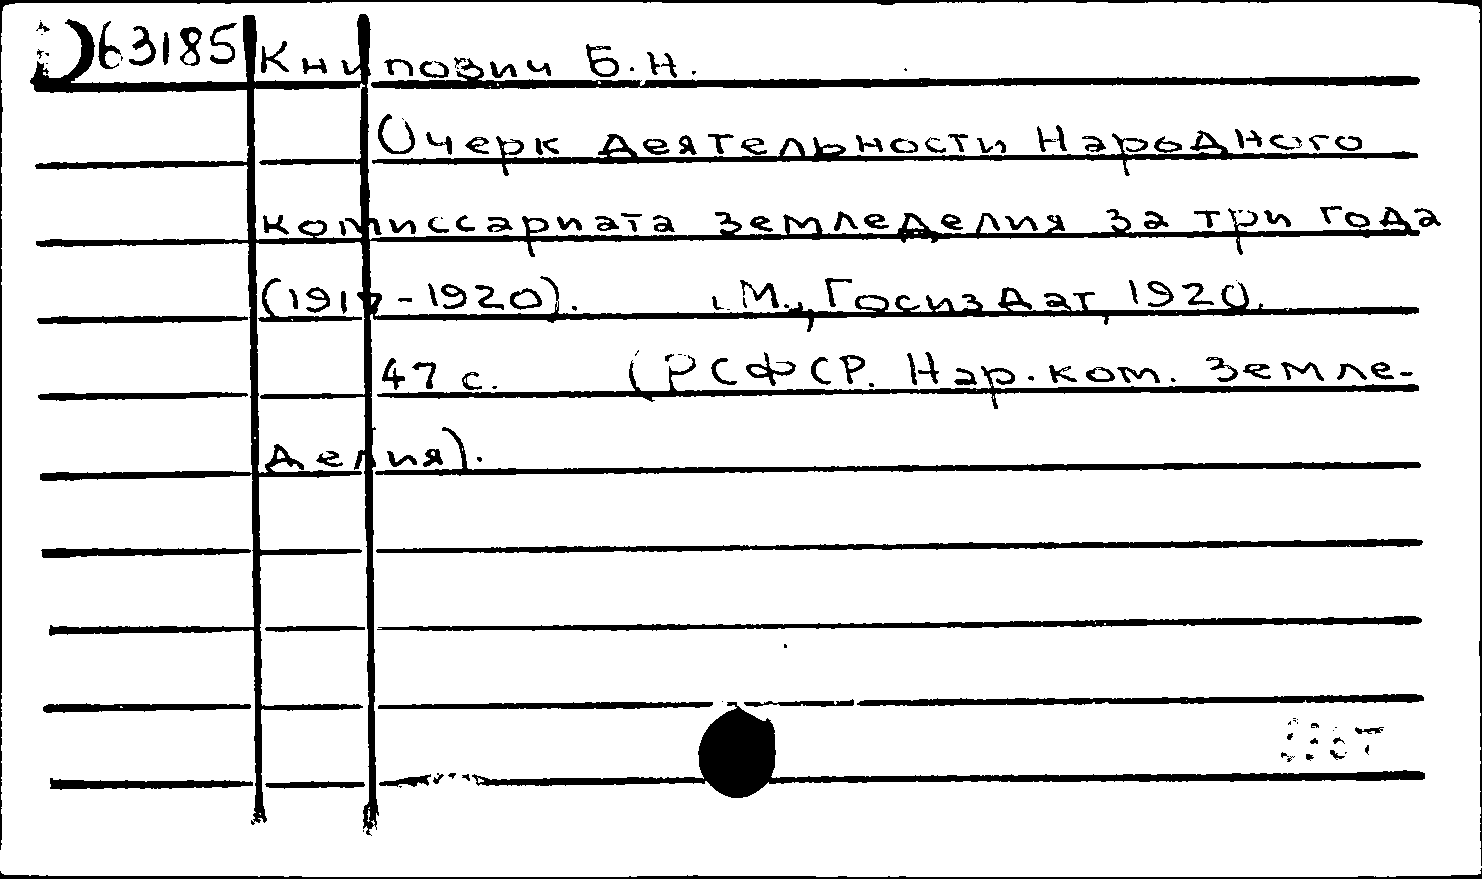 D63185 Книпович Б.Н.
Очерк деятельности Народного
комиссариата земледелия за три года
(1917-1920). М., Госиздат, 1920.
47 с. (РСФСР. Нар.ком. Земле-
делия).